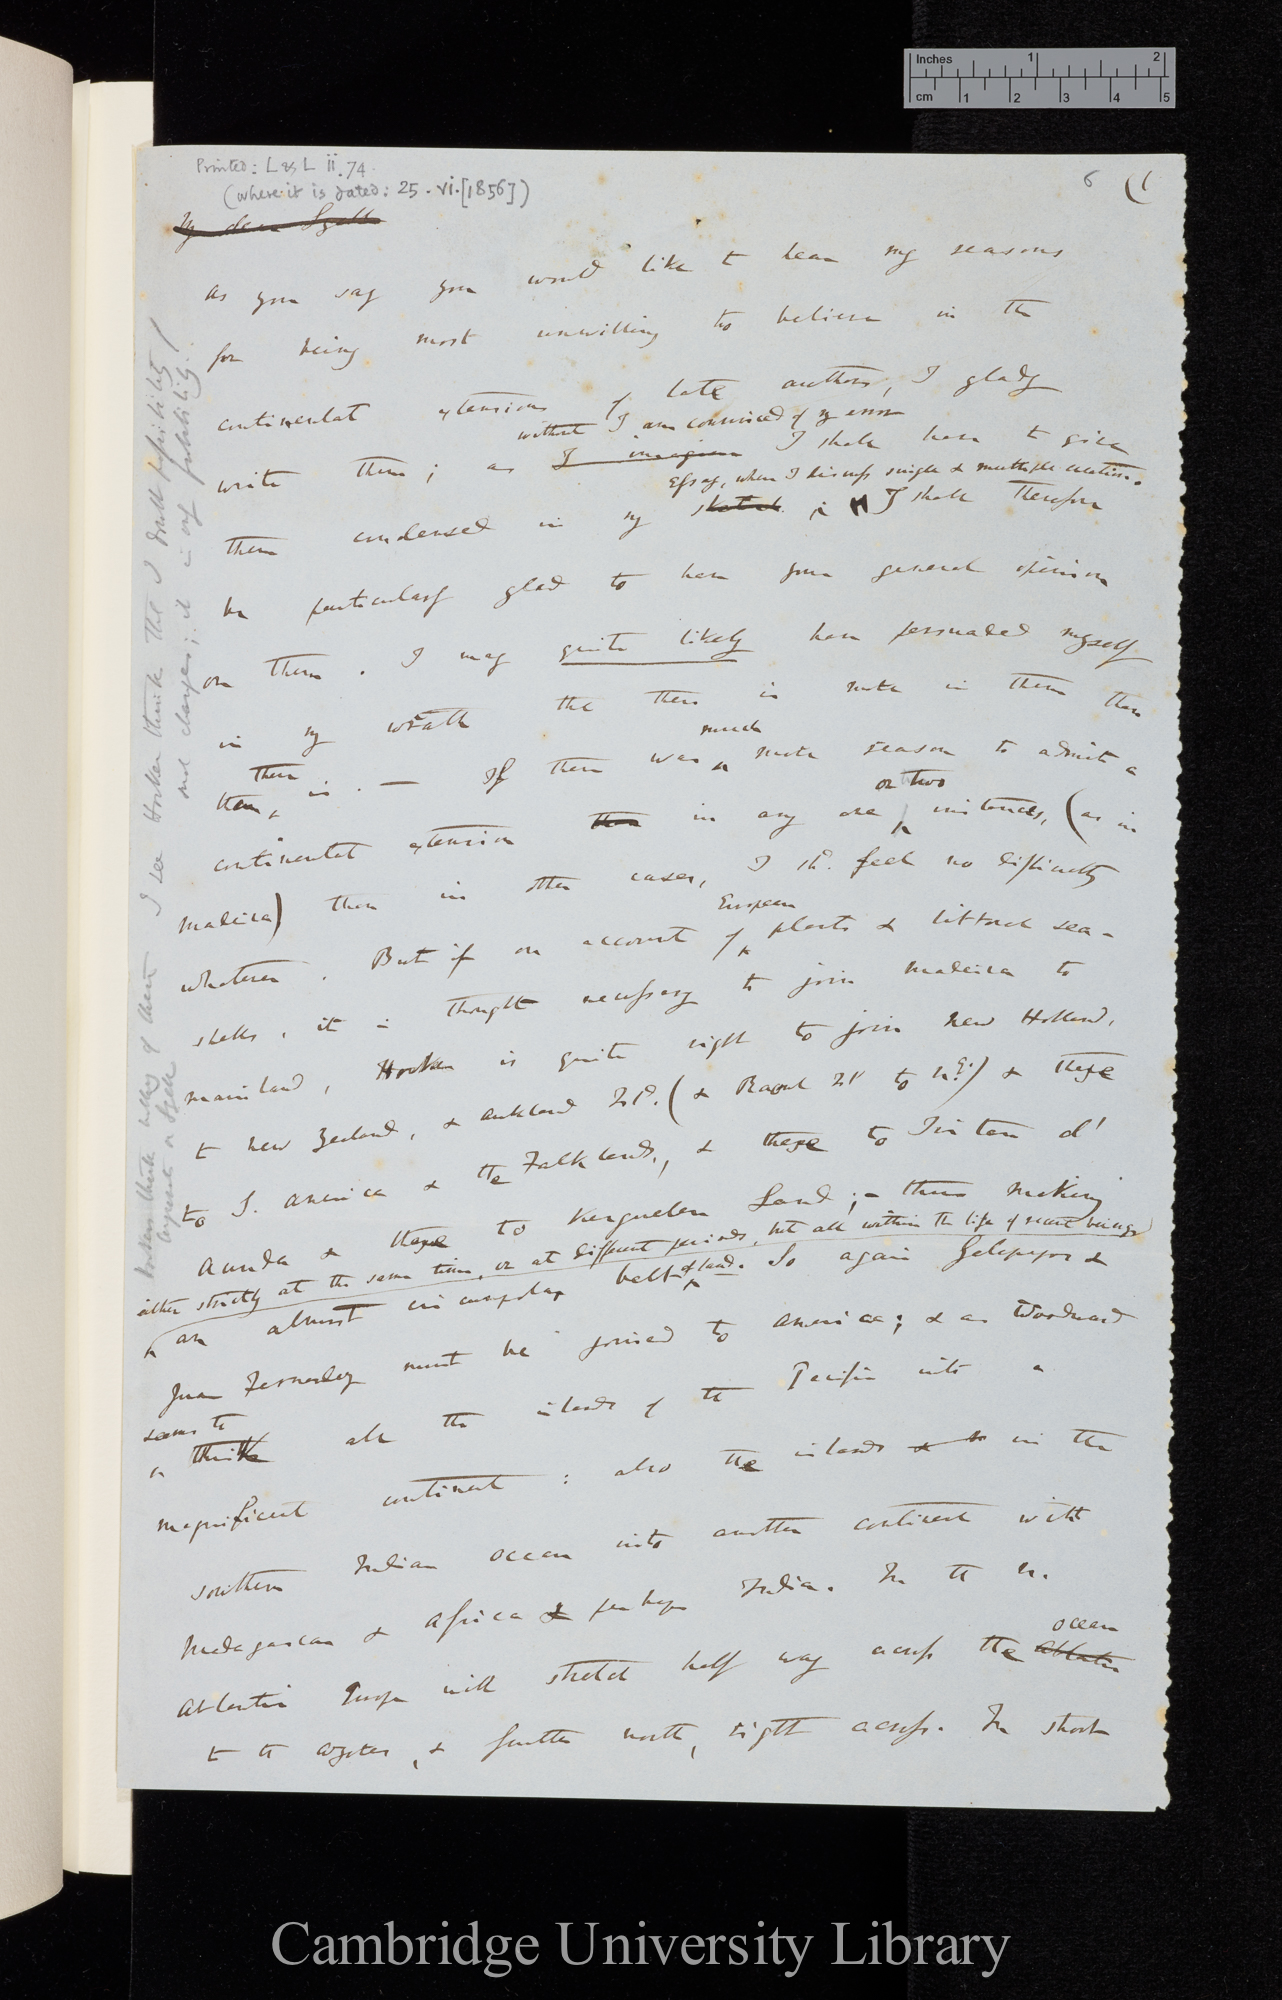 Inches 1 2
cm 1 2 3 4 5
Printed: L & L ii. 74.
(where it is dated: 25. vi. [1856])
6 (1
My dear Lyell
As you say you would like to hear my reasons
for being most unwilling to believe in the
continental extensions of late authors, I gladly
without I am convinced of my error
write them; as I imagine I shall have to give
Essay, when I discuss single & multiple creation.
them condensed in my sketch; I shall therefore
be particularly glad to have your general opinion
on them. I may quite likely have persuaded myself
in my wrath that there is more in them than
there much
them, is. — If there was more reason to admit a
or two
continental extension than in any one instances, (as in
Madeira) than in other cases, I shd. feel no difficulty
European
whatever. But if on account of plants & littoral sea-
shells, it is thought necessary to join Madeira to
mainland, Hooker is quite right to join New Holland,
to New Zealand, & Auckland Isld. (& Raoul Isl to N.E.) & these
to S. America & the Falklands, & these to Tristan d'
Acunha & these to Kerguelen Land; - thus making
either strictly at the same time, or at different periods, but all within the life of recent beings
an almost circumpolar belt of land. So again Galapagos &
Juan Fernandez must be joined to America; & as Woodward
seems to
think all the islands of the Pacific into a
magnificent continent: also the islands in the
southern Indian Ocean into another continent with
Madagascar & Africa & perhaps India. In the N.
ocean
Atlantic Europe will stretch half way across the Atlantic
to the Azores, & further north, right across. In short
I see Hooker think that I doubt possibility
and changes; it is only probability.
Cambridge University Library